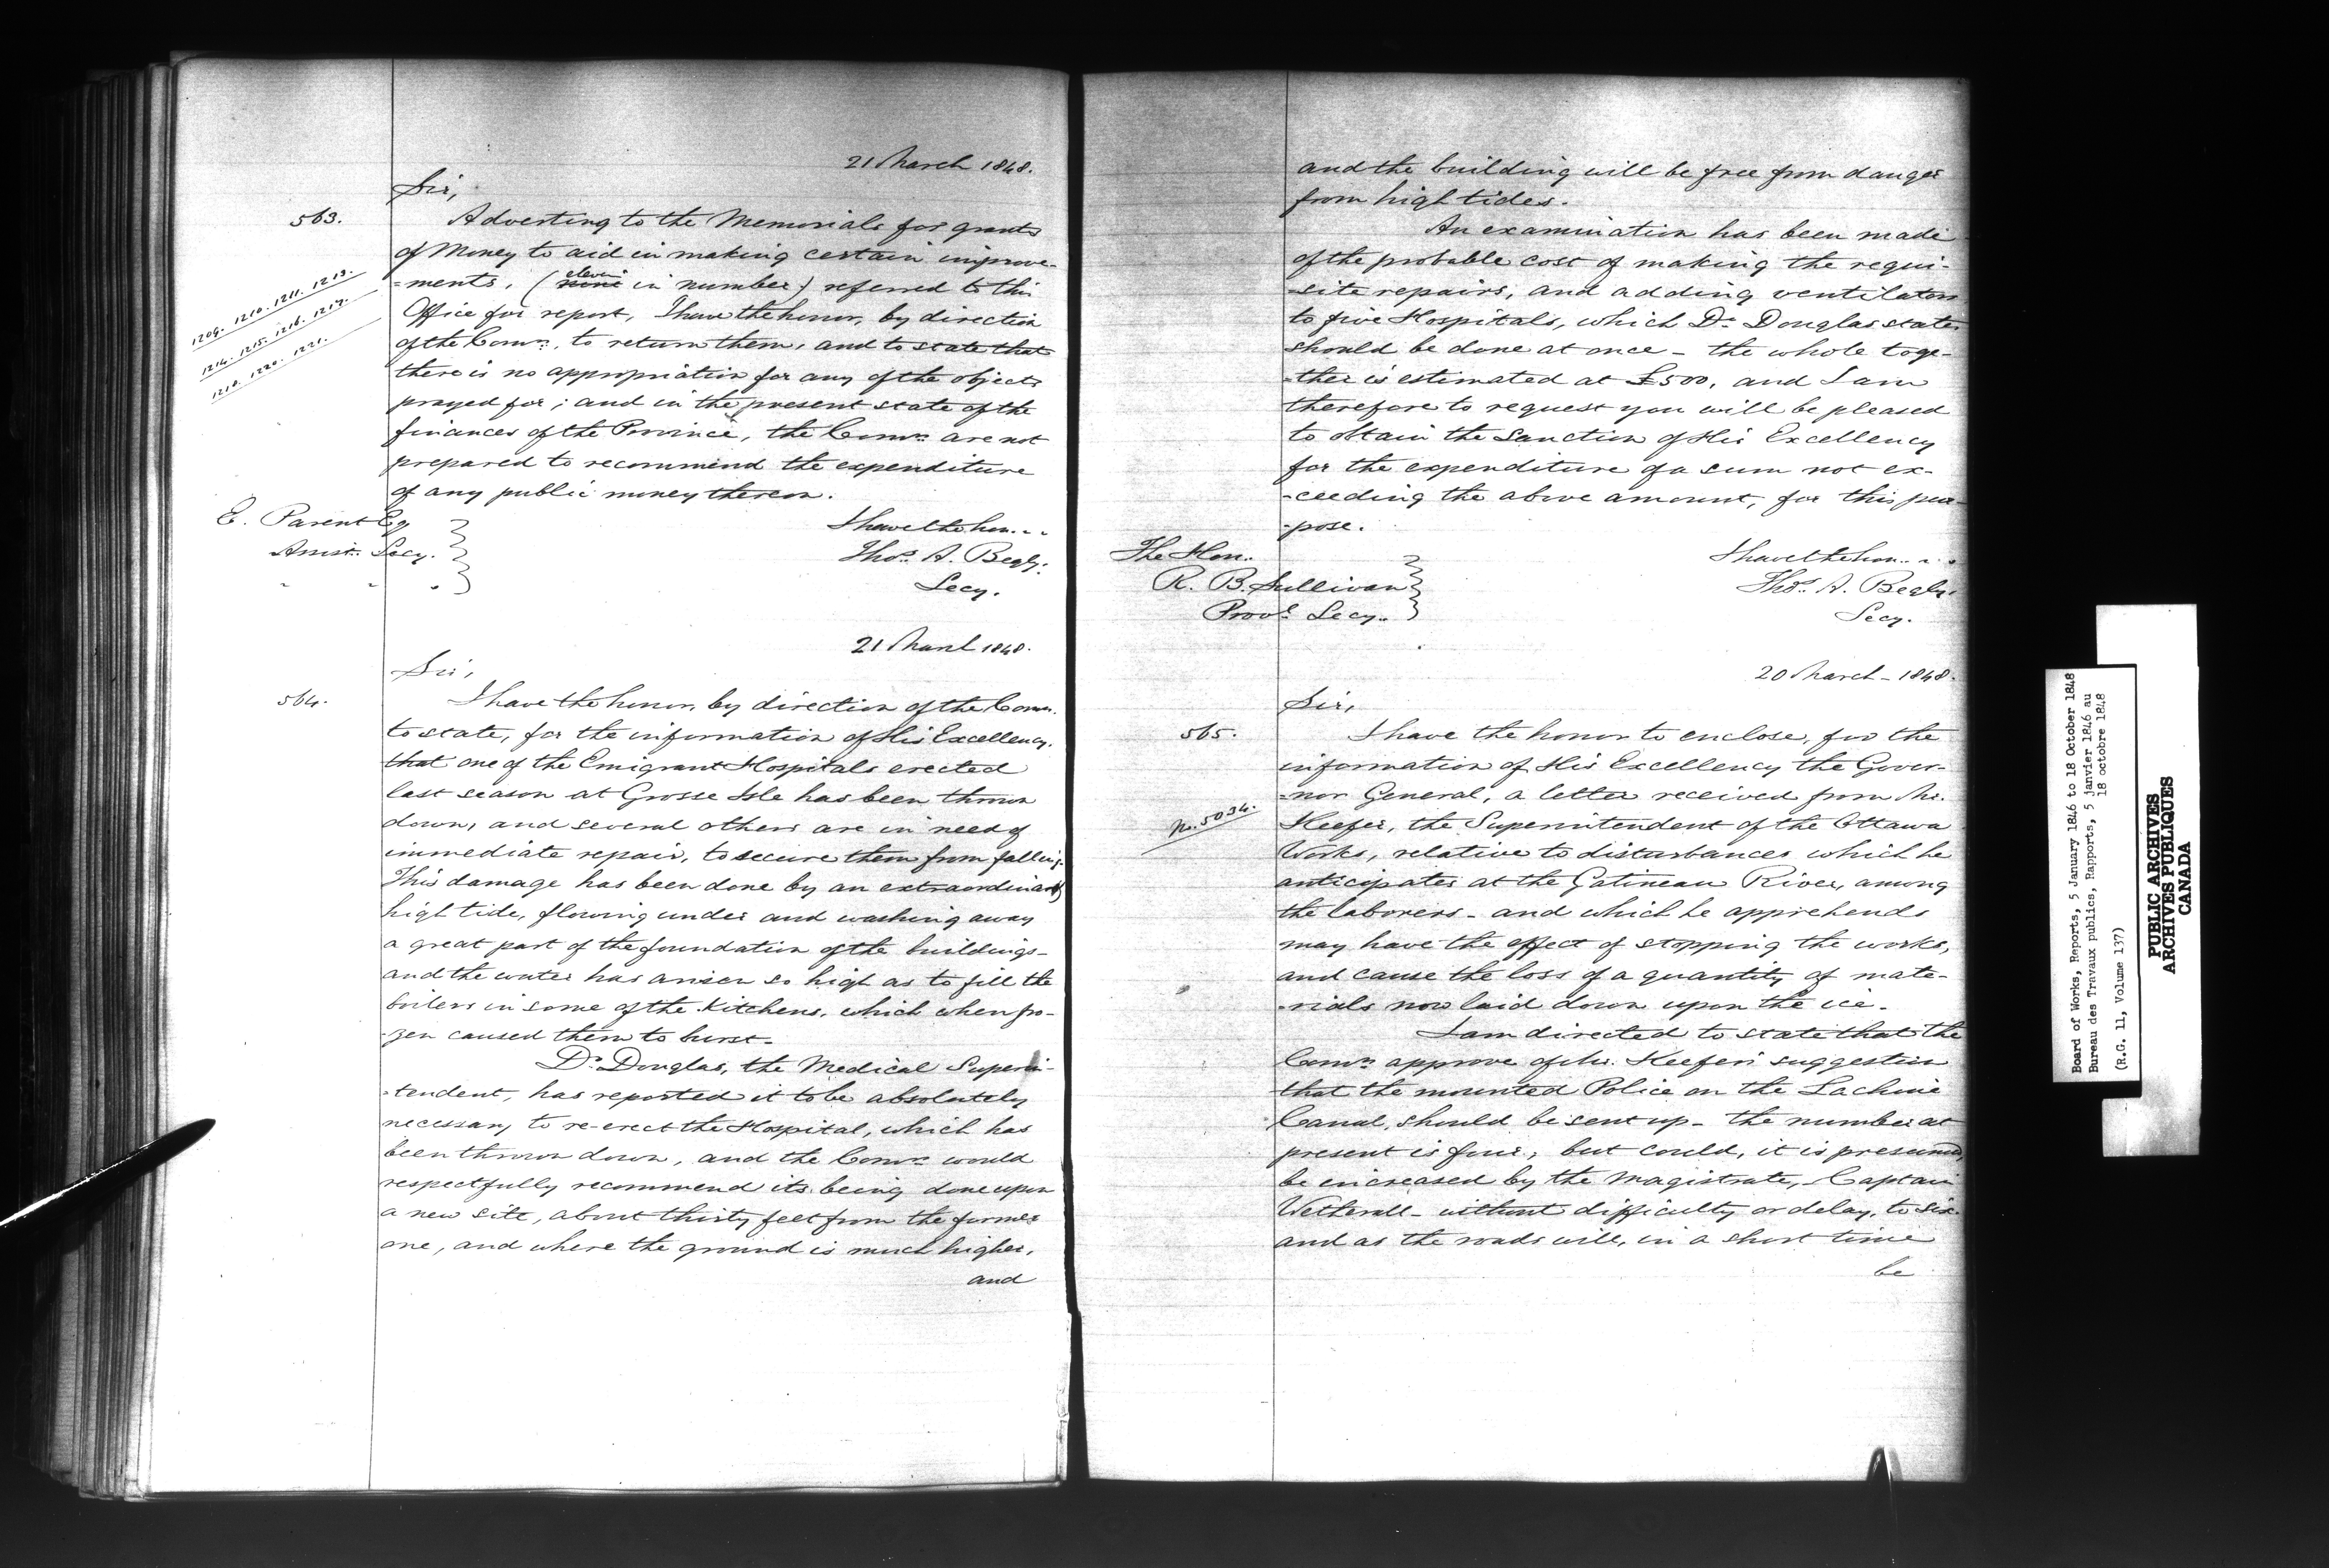 21 March 1848.
Sir,
563.
Adverting to the Memorials for grants
of Money to aid in making certain improve-
1209. 1210. 1211. 1213.
1214. 1215. 1216. 1217.
1218. 1220. 1221.
=ments, (nine eleven in number) referred to this
Office for report, I have the honor, by direction
of the Comrs. to return them, and to state that
there is no appropriation for any of the objects
prayed for; and in the present state of the
finances of the Province, the Comrs are not
prepared to recommend the expenditure
of any public money thereon.
E. Parent Esq
Assist. Secy.
" " "
I have the hon...
Thos. A. Begly.
Secy.
21 March 1848.
Sir,
564.
I have the honor, by direction of the Comrs.
to state, for the information of His Excellency,
that one of the Emigrant Hospitals erected
last season at Grosse Isle has been thrown
down, and several others are in need of
immediate repair, to secure them from falling.
This damage has been done by an extraordinary
high tide, flowing under and washing away
a great part of the foundation of the buildings-
and the water has arisen so high as to fill the
boilers in some of the Kitchens, which when fro-
-zen caused them to burst-
Dr. Douglas, the Medical Superin-
-tendent, has reported it to be absolutely
necessary to re-erect the Hospital, which has
been thrown down, and the Comrs would
respectfully recommend its being done upon
a new site, about thirty feet from the former
one, and where the ground is much higher,
and
and the building will be free from danger
from high tides.
An examination has been made
of the probable cost of making the requi-
-site repairs, and adding ventilators
to five Hospitals, which Dr. Douglas states
should be done at once - the whole toge-
-ther is estimated at £500, and I am
therefore to request you will be pleased
to obtain the Sanction of His Excellency
for the expenditure of a sum not ex-
-ceeding the above amount, for this pur-
-pose.
The Hon.
R. B. Sullivan
Provl. Secy.
I have the hon...
Thos. A. Begly.
Secy.
20 March - 1848.
Sir,
565.
I have the honor to enclose, for the
information of His Excellency the Gover-
=nor General, a letter received from Mr.
No. 5034.
Keefer, the Superintendent of the Ottawa
Works, relative to disturbances which he
anticipates at the Gatineau River, among
the laborers - and which he apprehends
may have the effect of stopping the works,
and cause the loss of a quantity of mate-
-rials now laid down upon the ice.
I am directed to state that the
Comrs approve of Mr. Keefer's suggestion
that the mounted Police on the Lachine
Canal, should be sent up - the number at
present is four, but could, it is presumed,
be increased by the Magistrate, - Captain
Wetherall - without difficulty or delay, to six
and as the roads will, in a short time
be
Board of Works, Reports, 5 January 1846 to 18 October 1848
Bureau des Travaux publics, Rapports, 5 janvier 1846 au
18 octobre 1848
(R.G. 11, Volume 137)
PUBLIC ARCHIVES
ARCHIVES PUBLIQUES
CANADA